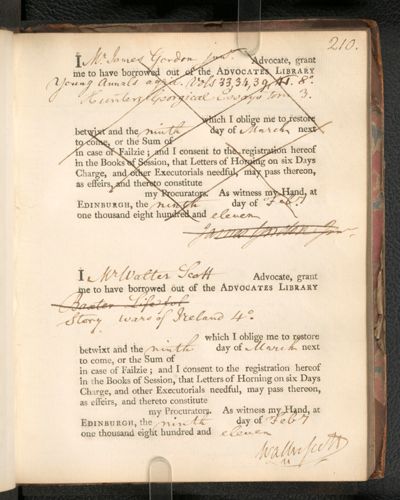 210.
I Mr. James Gordon junr. Advocate, grant
me to have borrowed out of the ADVOCATES LIBRARY
Young Annals agric. Vols 33, 34, 39, 8o.
Hunter Essays tom 3.
which I oblige me to restore
betwixt and the ninth day of March next
to come, or the Sum of
in case of Failzie; and I consent to the registration hereof
in the Books of Session, that Letters of Horning on six Days
Charge, and other Executorials needful, may pass thereon,
as effeirs, and thereto constitute
my Procurators. As witness my Hand, at
EDINBURGH, the ninth day of Feby
one thousand eight hundred and eleven
James Gordon Jnr.
I Mr Walter Scott Advocate, grant
me to have borrowed out of the ADVOCATES LIBRARY
Story wars of Ireland 4o.
which I oblige me to restore
betwixt and the ninth day of March next
to come, or the Sum of
in case of Failzie; and I consent to the registration hereof
in the Books of Session, that Letters of Horning on six Days
Charge, and other Executorials needful, may pass thereon,
as effeirs, and thereto constitute
my Procurators. As witness my Hand, at
EDINBURGH, the ninth day of Feby
one thousand eight hundred and eleven
Walter Scott